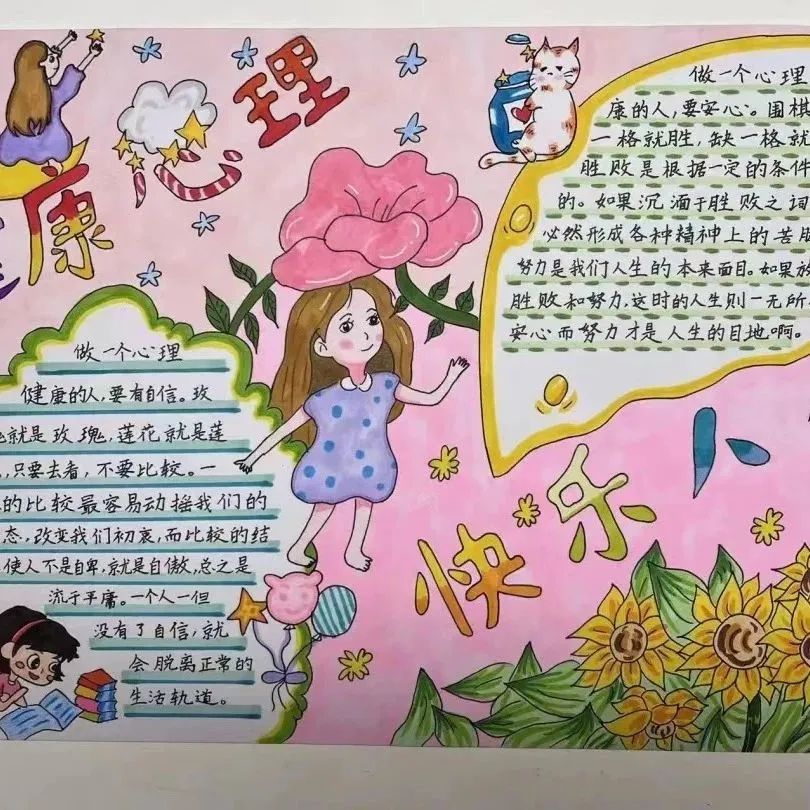 心理
康
做一个心理
康的人，要安心。围棋
一格就胜，缺一格就
胜败是根据一定的条件
的。如果沉湎于胜败之词
必然形成各种精神上的苦
努力是我们人生的本来面目。如果放
胜败和努力，这时的人生则一无所
安心而努力才是人生的目地啊。
做一个心理
健康的人，要有自信。玫
就是玫瑰，莲花就是莲
，只要去看，不要比较。一
的比较最容易动摇我们的
态，改变我们初衷，而比较的结
使人不是自卑，就是自傲，总之是
流于平庸。一个人一但
没有了自信，就
会脱离正常的
生活轨道。
快乐人